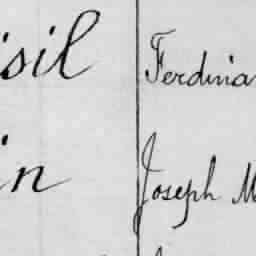 isil Ferdina
in Joseph M